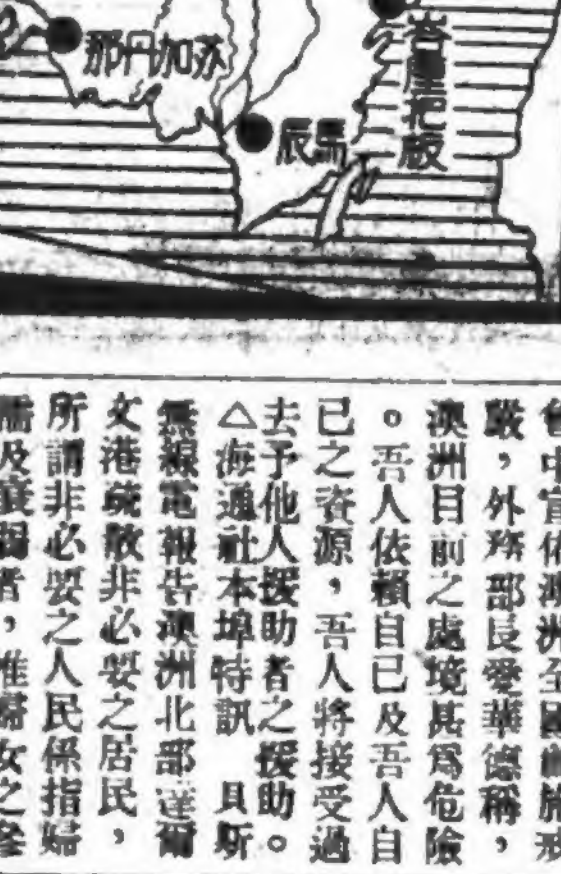 蘇加丹那
馬辰
把版
中宣佈澳洲全國施戒
嚴,外務部長愛華德稱,
澳洲目前之處境甚爲危險
。吾人依賴自己及吾人自
己之資源,吾人將接受過
去予他人援助者之援助。
△海通社本埠特訊　貝斯
無線電報告澳洲北部達爾
文港疏散非必要之居民,
所謂非必要之人民係指婦
孺及衰弱者,惟婦女之參